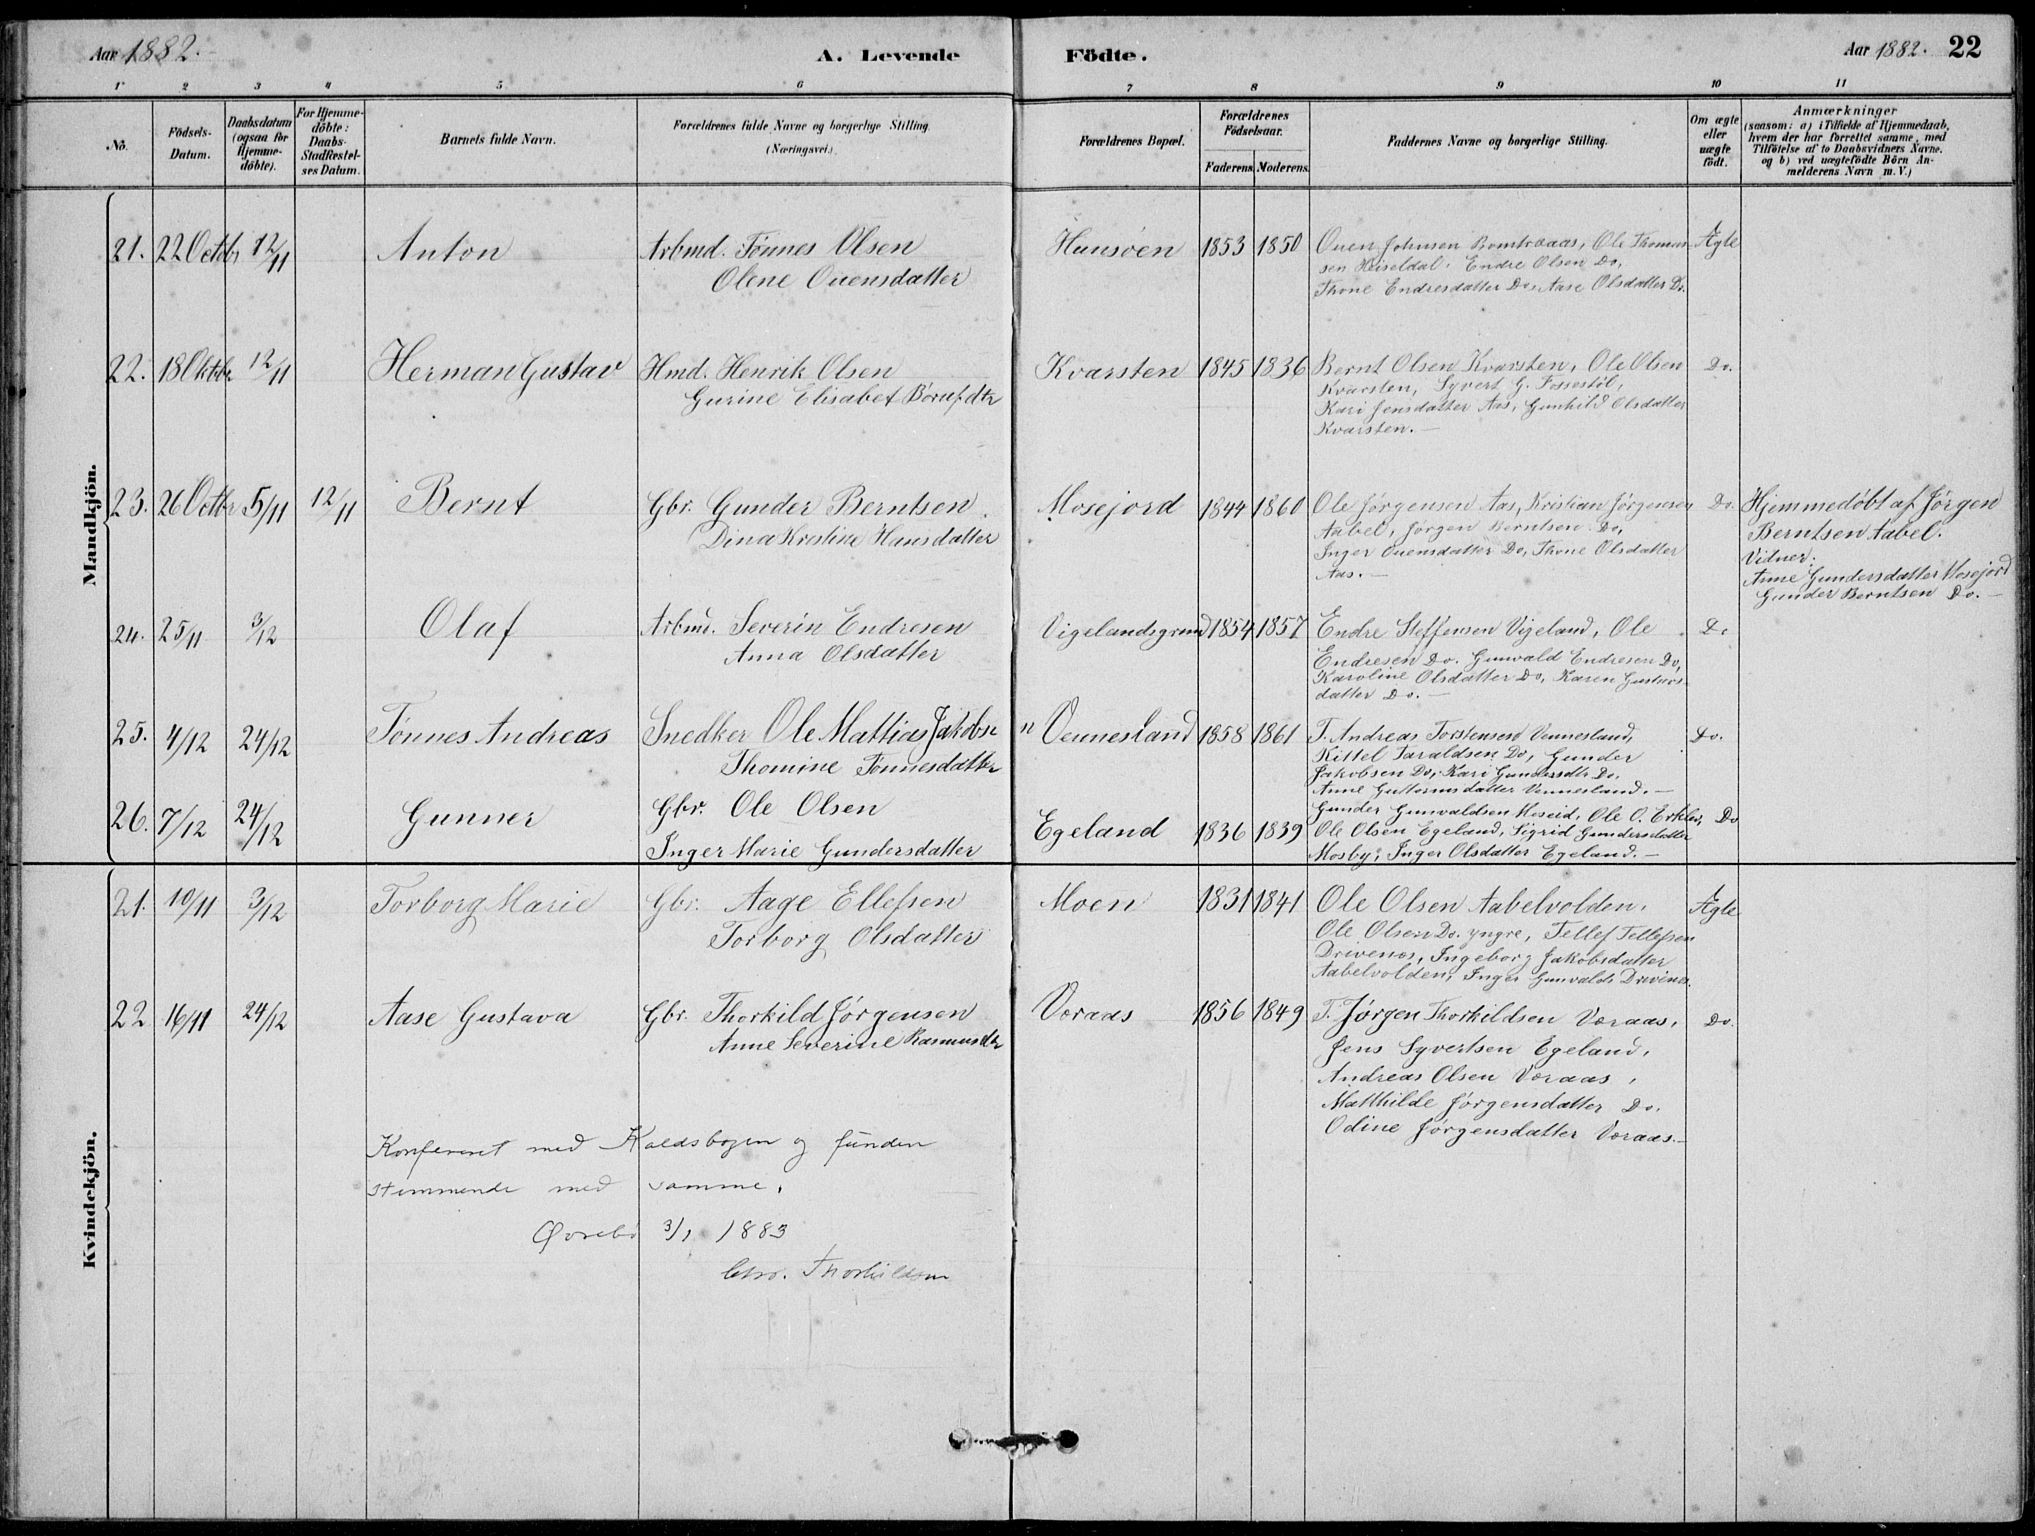 Aar 1882.
A. Levende Födte.
Aar 1882. 22
1 2 3 4 5 6 7 8 9 10 11
No.
Födsels-Datum.
Daabsdatum (ogsaa for Hjemme-döbte).
For Hjemme-döbte: Daabs-Stadfæstel-ses Datum.
Barnets fulde Navn.
Forældrenes fulde Navne og borgerlige Stilling. (Næringsvei.)
Forældrenes Bopæl.
Forældrenes Födselsaar.
Faderens. Moderens.
Faddernes Navne og borgerlige Stilling.
Om ægte eller uægte födt.
Anmærkninger
(saasom: a) i Tilfælde af Hjemmedaab, hvem der har forrettet samme, med Tilföielse af to Daabsvidners Navne. og b) ved uægtefödte Börn An-melderens Navn m. V.)
Mandkjön.
21. 22 Octbr 12/11 Anton Arbmd. Tönnes Olsen Hunsöen 1853 1850 Ouen Johnsen Ole Thomas- Ægte
Olene Ouensdatter sen Heiseldal, Endre Olsen Do,
Thone Endresdatter Do, Aase Olsdatter Do.
22. 18 Oktbr 12/11 Herman Gustav Hmd. Henrik Olsen Kvarsten 1845 1836 Bernt Olsen Kvarsten, Ole Olsen Do.
Gurine Elisabet Kvarsten, Syvert G. Fossestöl,
Kari Jensdatter Aas, Gunhild Olsdatter
Kvarsten.—
23. 26 Octbr 5/11 12/11 Bernt Gbr. Gunder Berntsen Mosejord 1844 1860 Ole Jörgensen Aas, Kristian Jörgensen Do. Hjemmedöbt af Jörgen
Dina Kristine Hansdatter Aabel, Jörgen Berntsen Do, Berntsen Aabel.
Inger Ouensdatter Do, Thone Olsdatter Vidner:
Aas.— Anne Gundersdatter Mosejord
Gunder Berntsen Do.—
24. 25/11 3/12 Olaf Arbmd. Severin Endresen Vigelandsgrund 1854 1857 Endre Steffensen Vigeland, Ole Do
Anna Olsdatter Endresen Do. Gunvald Endresen Do,
Karoline Olsdatter Do, Karen Gustavs-
datter Do.—
25. 4/12 24/12 Tönnes Andreas Snedker Ole Mattias Jakobsen Vennesland 1858 1861 T. Andreas Torstensen Vennesland, Do.
Thomine Tönnesdatter Kittel Taraldsen Do, Gunder
Jakobsen Do, Kari Gundersdtr Do.
Anne Guttormsdatter Vennesland.—
26. 7/12 24/12 Gunner Gbr. Ole Olsen Egeland 1836 1839 Gunder Gunvaldsen Moseid, Ole O. Erklev, Do
Inger Marie Gundersdatter Ole Olsen Egeland, Sigrid Gundersdatter
Mosby, Inger Olsdatter Egeland.—
Kvindekjön.
21. 10/11 3/12 Torborg Marie Gbr. Aage Ellefsen Moen 1831 1841 Ole Olsen Aabelvolden, Ægte
Torborg Olsdatter Ole Olsen Do. yngre, Tellef Tellefsen
Drivenes, Ingeborg Jakobsdatter
Aabelvolden, Inger Gunvaldsd. Drivenes.
22 16/11 24/12 Aase Gustava Gbr. Thorkild Jörgensen Voraas 1856 1849 T. Jörgen Thorkildsen Voraas, Do.
Anne Severine Rasmusdtr Jens Syvertsen Egeland,
Andreas Olsen Voraas,
Matthilde Jörgensdatter Do.
Odine Jörgensdatter Voraas.—
Konfereret med Kaldsbogen og funden
stemmende med samme.
Øvrebø 3/1 1883
Chr. Thorkildsen